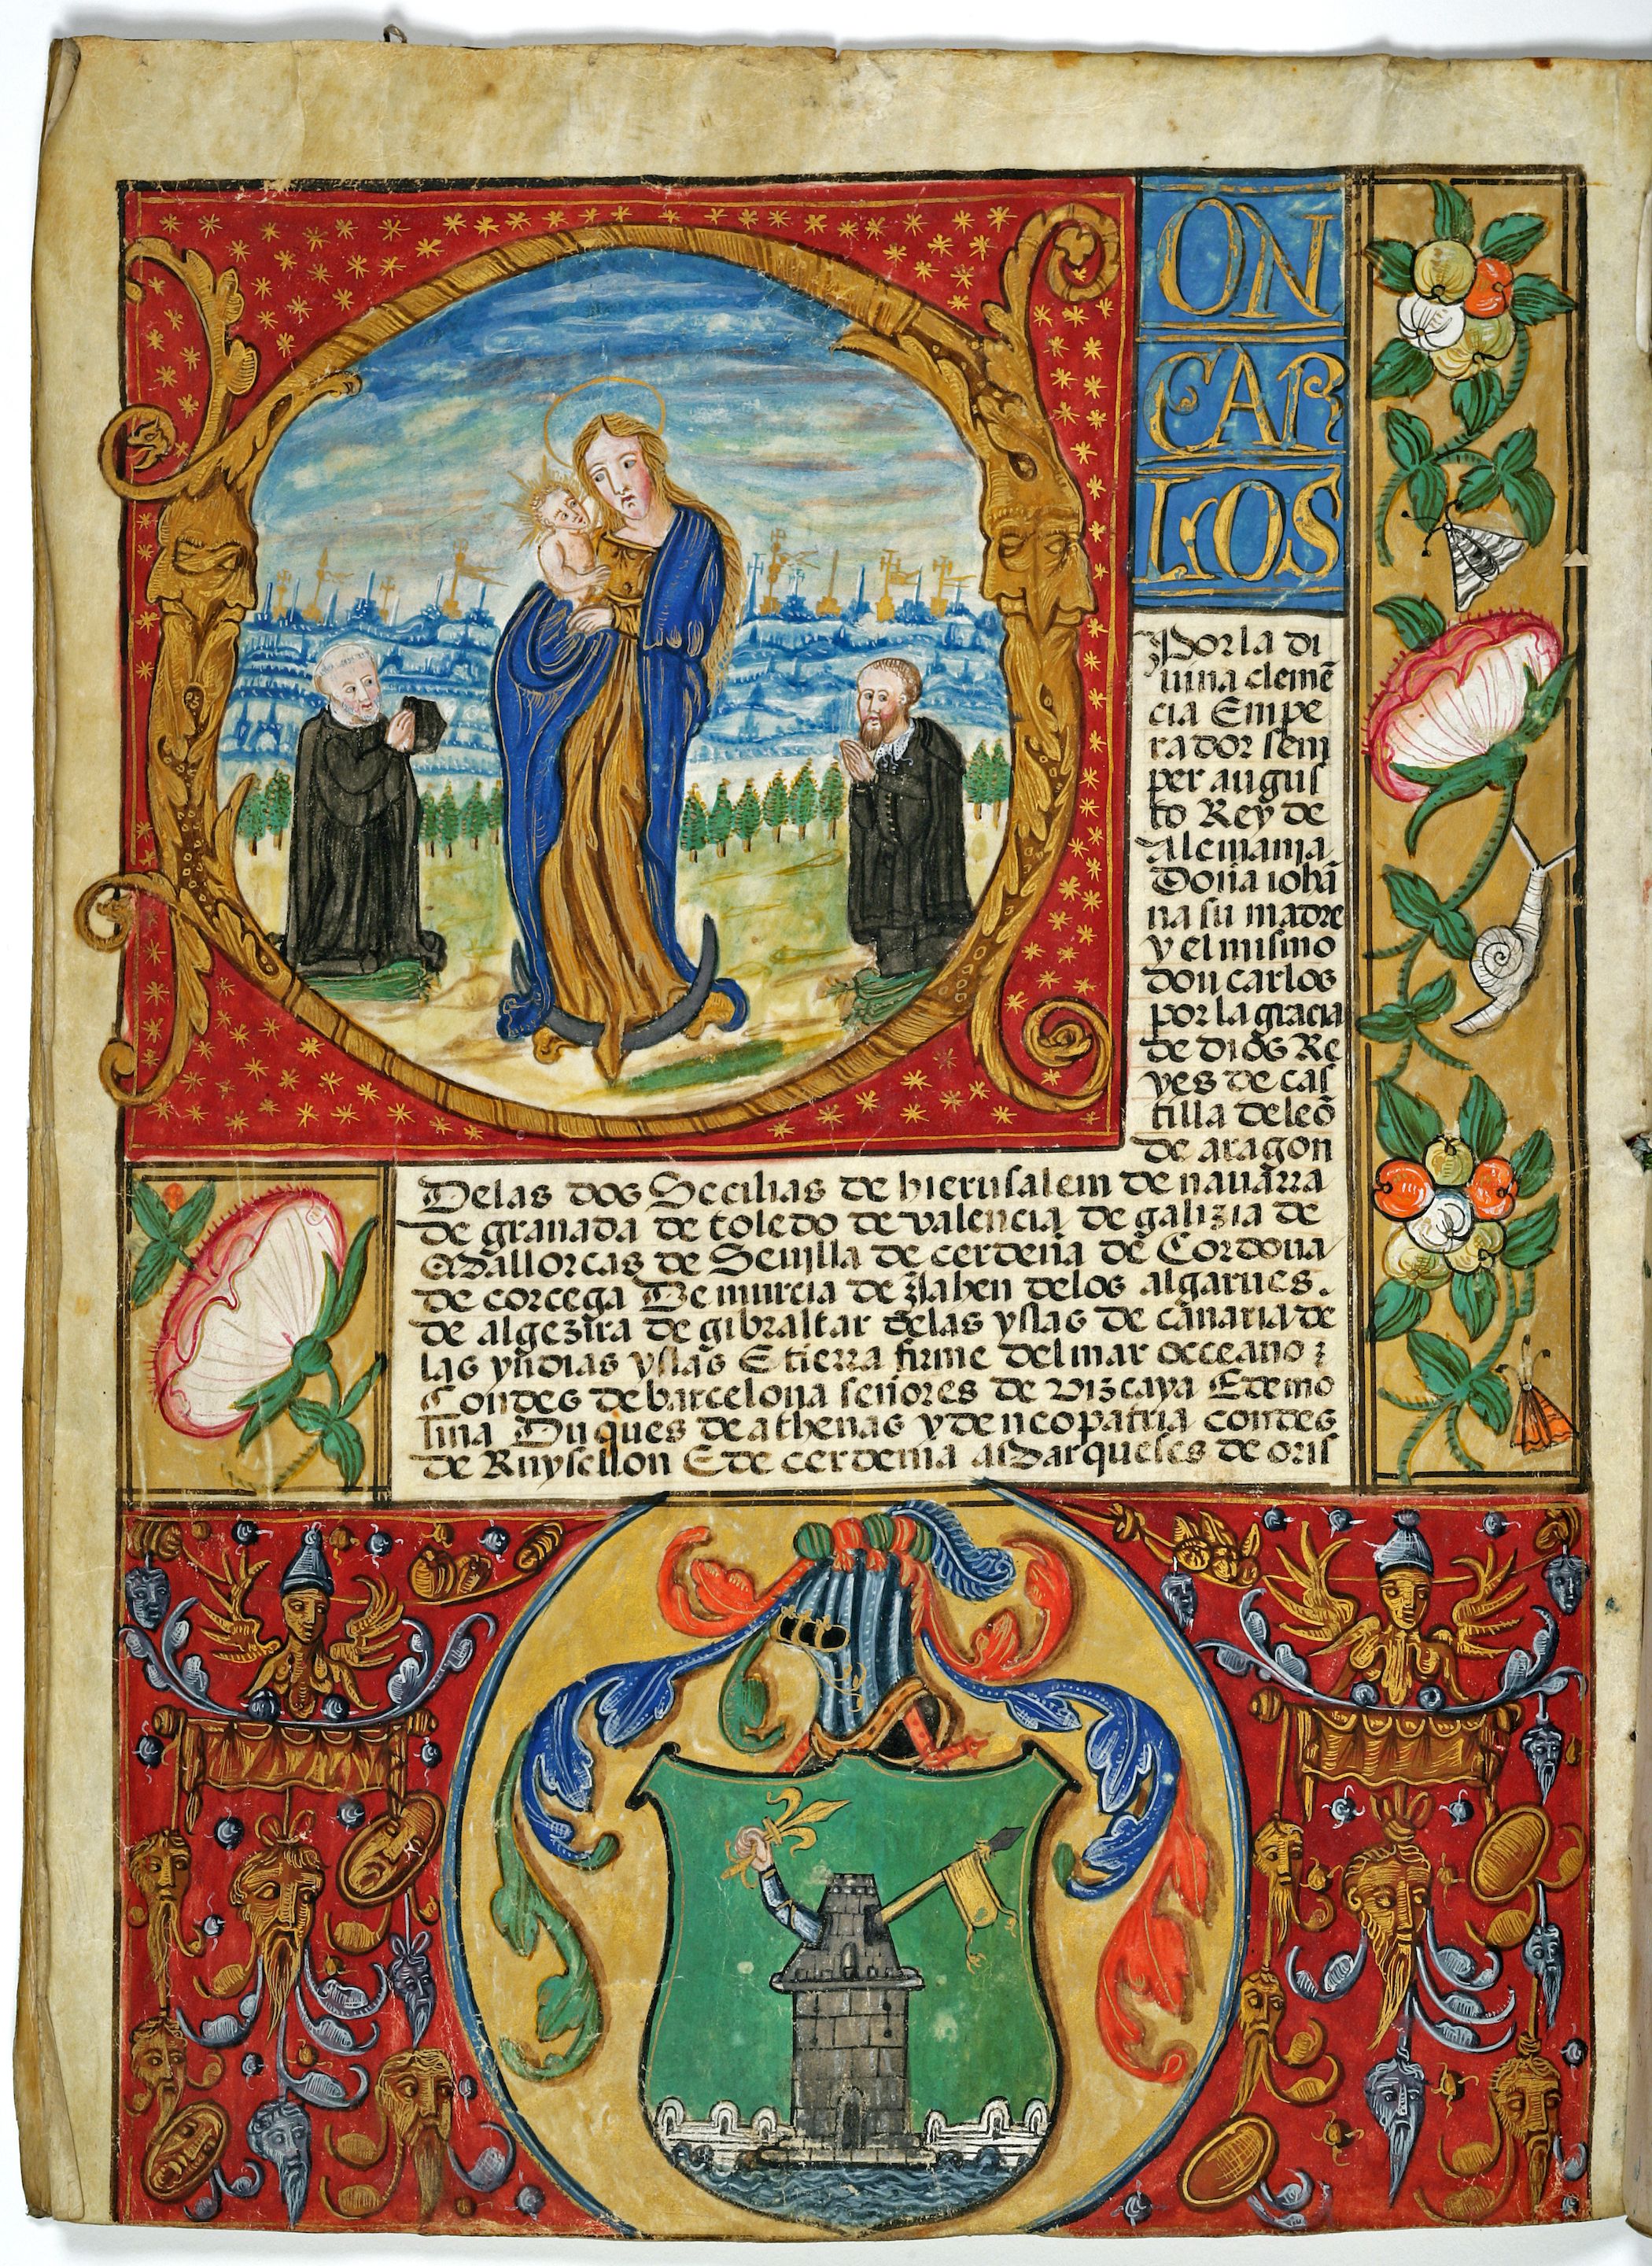 ON
CAR
LOS
Por la di
uina clemē
cia Empe
rador sem
per augus
to Rey de
alemania
Doña iohā
na su madre
y el mismo
don carlos
por la gracia
de dios Re
yes de cas
tilla de leō
de aragon
Delas dos Secilias de hierusalem de nauarra
de granada de toledo de valencia de galizia de
Mallorcas de Seuilla de cerdeña de Cordoua
de corcega De murcia de Jahen delos algarues.
de algezira de gibraltar delas yslas de canaria de
las yndias yslas E tierra firme del mar occeano :
Condes de barcelona señores de vizcaya E de mo
lina Duques de athenas y de neopatria condes
de Ruysellon E de cerdenia Marqueses de oris